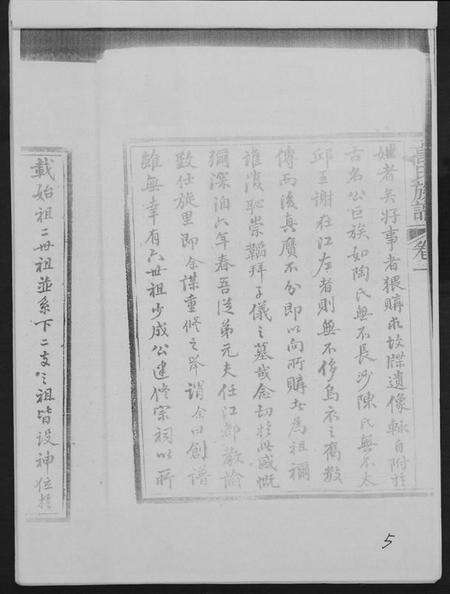 高氏族譜 卷一
姍者矣好事者猥購求故牒遺像輒自附於
古名公巨族如陶氏無不長沙陳氏無不太
邱王謝在江左者則無不侈烏衣之舊數
傳而後真贗不分即以向所購者為祖禰
誰復恥崇韜拜子儀之墓哉余切於此感慨
彌深洎六年春吾從弟元夫任江都教諭
致仕旋里即余謀重修之舉謂余曰創譜
雖無幸有六世祖少成公建修宗祠以所
載始祖二世祖並系下二支之祖皆設神位於
5